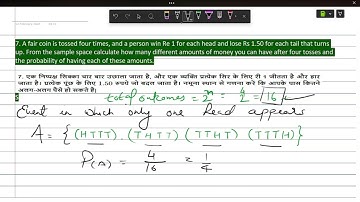 7. A fair coin is tossed four times, and a person win Re 1 for each head and lose Rs 1.50 for each tail that turns
up. From the sample space calculate how many different amounts of money you can have after four tosses and
the probability of having each of these amounts.
7. एक निष्पक्ष सिक्का चार बार उछाला जाता है, और एक व्यक्ति प्रत्येक सिर के लिए री 1 जीतता है और हार
जाता है। प्रत्येक पूंछ के लिए 1.50 रुपये जो बदल जाता है। नमूना स्थान से गणना करें कि आपके पास कितने
अलग-अलग पैसे हो सकते हैं।
total outcomes = 2ⁿ = 2⁴ = 16
Event in which only one Head appears
A = { (HTTT), (THTT) (TTHT) (TTTH) }
P(A) = 4/16 = 1/4